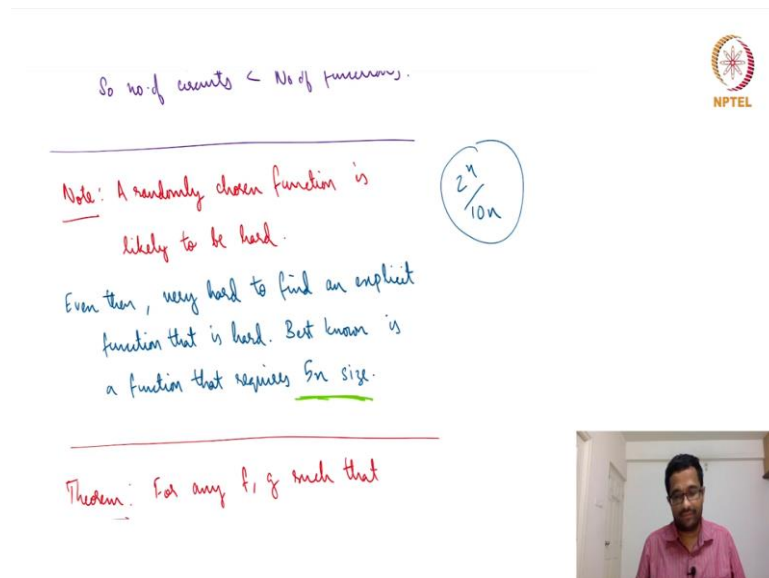 So no. of circuits < No of functions.
NPTEL
Note: A randomly chosen function is
likely to be hard.
2^n/10n
Even then, very hard to find an explicit
function that is hard. Best known is
a function that requires 5n size.
Theorem: For any f, g such that